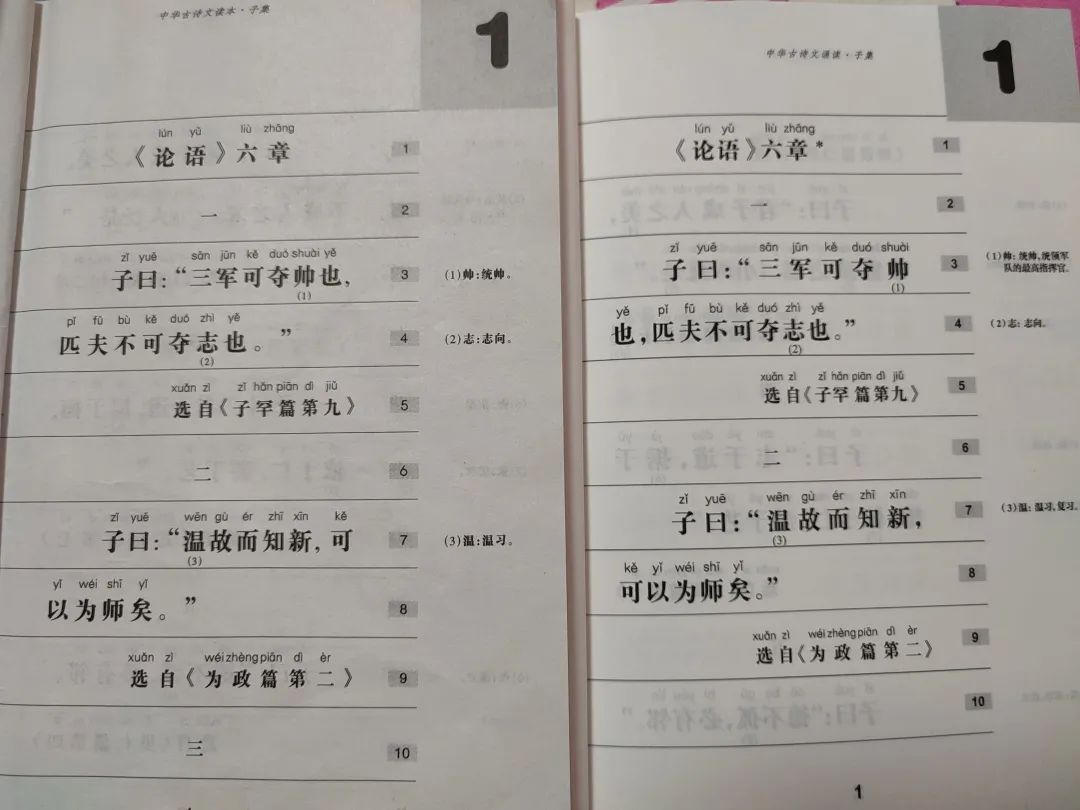 中华古诗文读本·子集
1
lún yǔ liù zhāng
《论语》六章 1
一 2
zǐ yuē sān jūn kě duó shuài yě
子曰:“三军可夺帅也, 3 (1)帅:统帅。
(1)
pǐ fū bù kě duó zhì yě
匹夫不可夺志也。” 4 (2)志:志向。
(2)
xuǎn zì zǐ hǎn piān dì jiǔ
选自《子罕篇第九》 5
二 6
zǐ yuē wēn gù ér zhī xīn kě
子曰:“温故而知新,可 7 (3)温:温习。
(3)
yǐ wéi shī yǐ
以为师矣。” 8
xuǎn zì wéi zhèng piān dì èr
选自《为政篇第二》 9
三 10
中华古诗文诵读·子集
1
lún yǔ liù zhāng
《论语》六章* 1
一 2
zǐ yuē sān jūn kě duó shuài
子曰:“三军可夺帅 3 (1)帅:统帅,统领军
队的最高指挥官。
(1)
yě pǐ fū bù kě duó zhì yě
也,匹夫不可夺志也。” 4 (2)志:志向。
(2)
xuǎn zì zǐ hǎn piān dì jiǔ
选自《子罕篇第九》 5
二 6
zǐ yuē wēn gù ér zhī xīn
子曰:“温故而知新, 7 (3)温:温习,复习。
(3)
kě yǐ wéi shī yǐ
可以为师矣。” 8
xuǎn zì wéi zhèng piān dì èr
选自《为政篇第二》 9
10
1